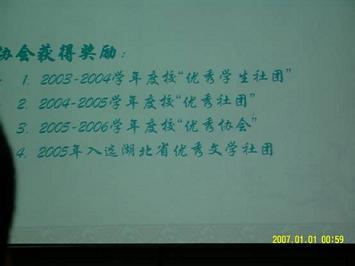 协会获得奖励：
1. 2003-2004学年度校“优秀学生社团”
2. 2004-2005学年度校“优秀社团”
3. 2005-2006学年度校“优秀协会”
4. 2005年入选湖北省优秀文学社团
2007.01.01 00:59